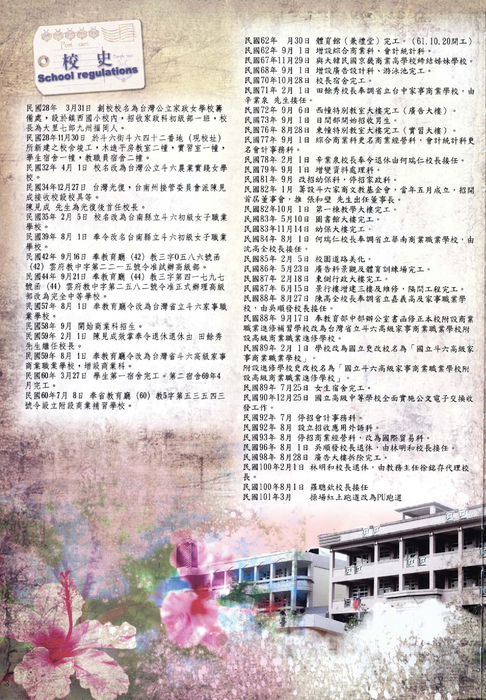 校 史
School regulations
民國28年 3月31日 創校校名為台灣公立家政女學校籌
備處,設於鎮西國小校內,招收家政科初級部一班,校
長為大里七郎九州福岡人。
民國28年11月30日 於斗六街斗六四十二番地(現校址)
所新建之校舍竣工,木造平房教室二幢,實習室一幢,
學生宿舍一幢,教職員宿舍二幢。
民國32年 4月 1日 校名改為台灣公立斗六農業實踐女學
校。
民國34年12月27日 台灣光復,台南州接管委員會派陳見
成接收校設校具等。
陳見成 先生為光復後首任校長。
民國35年 2月 5日 校名改為台南縣立斗六初級女子職業
學校。
民國39年 8月 1日 奉令改名台南縣立斗六初級女子職業
學校。
民國42年 9月16日 奉教育廳 (42) 教三字0五八六號函
(42) 雲府教中字第二二一五號令准試辦高級部。
民國44年 9月21日 奉教育廳 (44) 教三字第四一七九七
號函 (44) 雲府教中字第二五八二號令准正式辦理高級
部改為完全中等學校。
民國57年 8月 1日 奉教育廳令改為台灣省立斗六家事職
業學校。
民國58年 9月 開始商業科招生。
民國59年 2月 1日 陳見成效掌奉令退休退休由 田餘秀
先生繼任校長。
民國59年 8月 1日 奉教育廳令改為台灣省斗六高級家事
商業職業學校,增設商業科。
民國60年 3月27日 學生第一宿舍完工。第二宿舍69年4
月完工。
民國60年7月 8日 奉省教育廳 (60) 教5字第五三五四三
號令設立附設商業補習學校。
民國62年 月30日 體育館(兼禮堂)完工。(61.10.20開工)
民國62年 9月 1日 增設綜合商業科、會計統計科。
民國67年11月29日 與大韓民國京畿商業高學校締結姊妹學校。
民國68年 9月 1日 增設廣告設計科、游泳池完工。
民國70年10月28日 校長宿舍完工。
民國71年 2月 1日 田餘秀校長奉調省立台中家事商業學校,由
辛業泉 先生接任。
民國72年 9月 6日 西幢特別教室大樓完工(廣告大樓)。
民國73年 9月 1日 日間部開始招收男生。
民國76年 8月28日 東幢特別教室大樓完工(實習大樓)。
民國77年 9月 1日 綜合商業科更名商業經營科,會計統計科更
名會計事務科。
民國78年 2月 1日 辛業泉校長奉令退休由何瑞仁校長接任。
民國79年 9月 1日 增變資料處理科。
民國81年 9月 改招幼保科,停招家政科。
民國82年 1月 籌設斗六家商文教基金會,當年五月成立,招開
首屆董事會,推 張和璧 先生出任董事長。
民國82年10月 1日 第一棟教學大樓完工。
民國83年 5月10日 圖書館大樓完工。
民國83年11月14日 幼保大樓完工。
民國84年 8月 1日 何瑞仁校長奉調省立華南商業職業學校,由
沈高全校長接任。
民國85年 2月 5日 校園道路美化。
民國86年 5月23日 廣告科景觀及體育訓練場完工。
民國87年 2月18日 東側行政大樓完工。
民國87年 6月15日 景行樓增建三樓及維修、隔間工程完工。
民國88年 8月27日 陳高全校長奉調省立嘉義高及家事職業學
校,由吳順發校長接任。
民國88年 9月17日 奉教育部中部辦公室書函修正本校附設商業
職業進修補習學校改為台灣省立斗六高級家事商業職業學校附
設高級商業職業進修學校。
民國89年 2月 1日 學校改為國立更改校名為「國立斗六高級家
事商業職業學校」,
附設進修學校更改校名為「國立斗六高級家事商業職業學校附
設高級商業職業進修學校」。
民國89年 7月25日 女生宿舍完工。
民國90年12月25日 國立高級中等學校全面實施公文電子交換收
發工作。
民國92年 7月 停招會計事務科。
民國92年 8月 設立招收應用外語科。
民國93年 8月 停招商業經營科,改為國際貿易科。
民國96年 8月 1日 吳順發校長退休,由林明和校長接任。
民國98年 8月28日 廣告大樓拆除完工。
民國100年2月1日 林明和校長退休,由教務主任徐銘存代理校
長。
民國100年8月1日 羅聰欽校長接任
民國101年3月 操場紅土跑道改為PU跑道